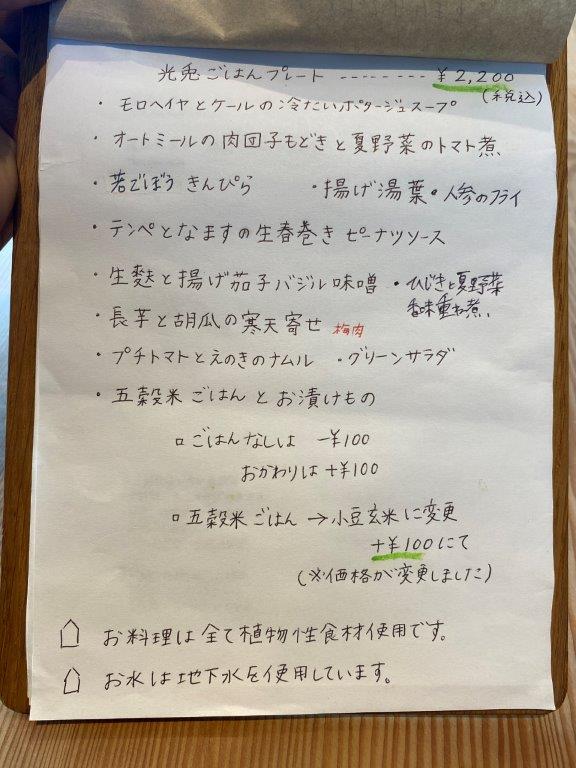 光兎ごはんプレート -------- ¥2,200
(税込)
・モロヘイヤとケールの冷たいポタージュスープ
・オートミールの肉団子もどきと夏野菜のトマト煮
・若ごぼうきんぴら ・揚げ湯葉・人参のフライ
・テンペとなますの生春巻き ピーナツソース
・生麩と揚げ茄子バジル味噌 ・ひじきと夏野菜
香味重ね煮
・長芋と胡瓜の寒天寄せ 梅肉
・プチトマトとえのきのナムル ・グリーンサラダ
・五穀米ごはんとお漬けもの
□ごはんなしは -¥100
おかわりは +¥100
□五穀米ごはん →小豆玄米に変更
+¥100にて
(※価格が変更しました)
お料理は全て植物性食材使用です。
お水は地下水を使用しています。